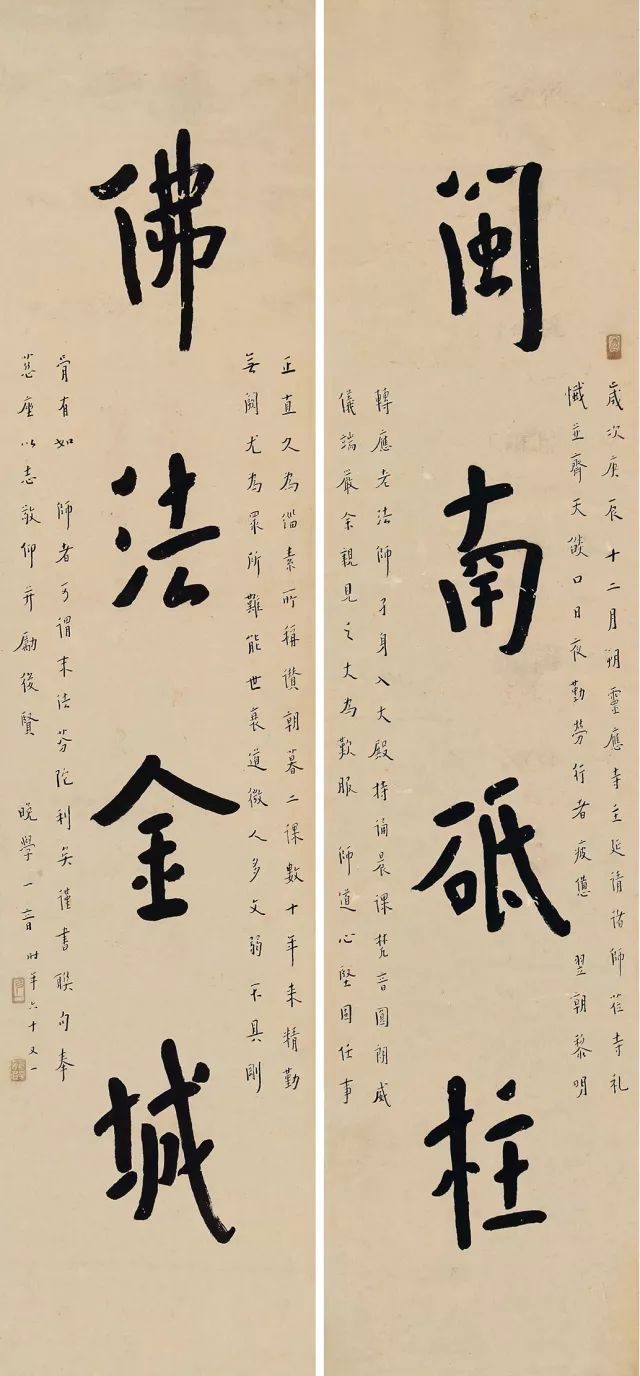 閩南砥柱
歲次庚辰十二月朔靈應寺主延請諸師蒞寺礼
懺並齊天燄口日夜勤勞行者疲憊 翌朝黎明
轉應老法師孑身入大殿持誦晨課梵音圓朗威
儀端嚴余親見之大為歎服 師道心堅固任事
佛法金城
正直久為緇素所稱讚朝暮二課數十年来精勤
無闕尤為眾所難能世衰道微人多文弱不具剛
骨有如 師者可謂末法芬陀利矣謹書聯句奉
慈座以志敬仰并勵後賢 晚學一音時年六十又一